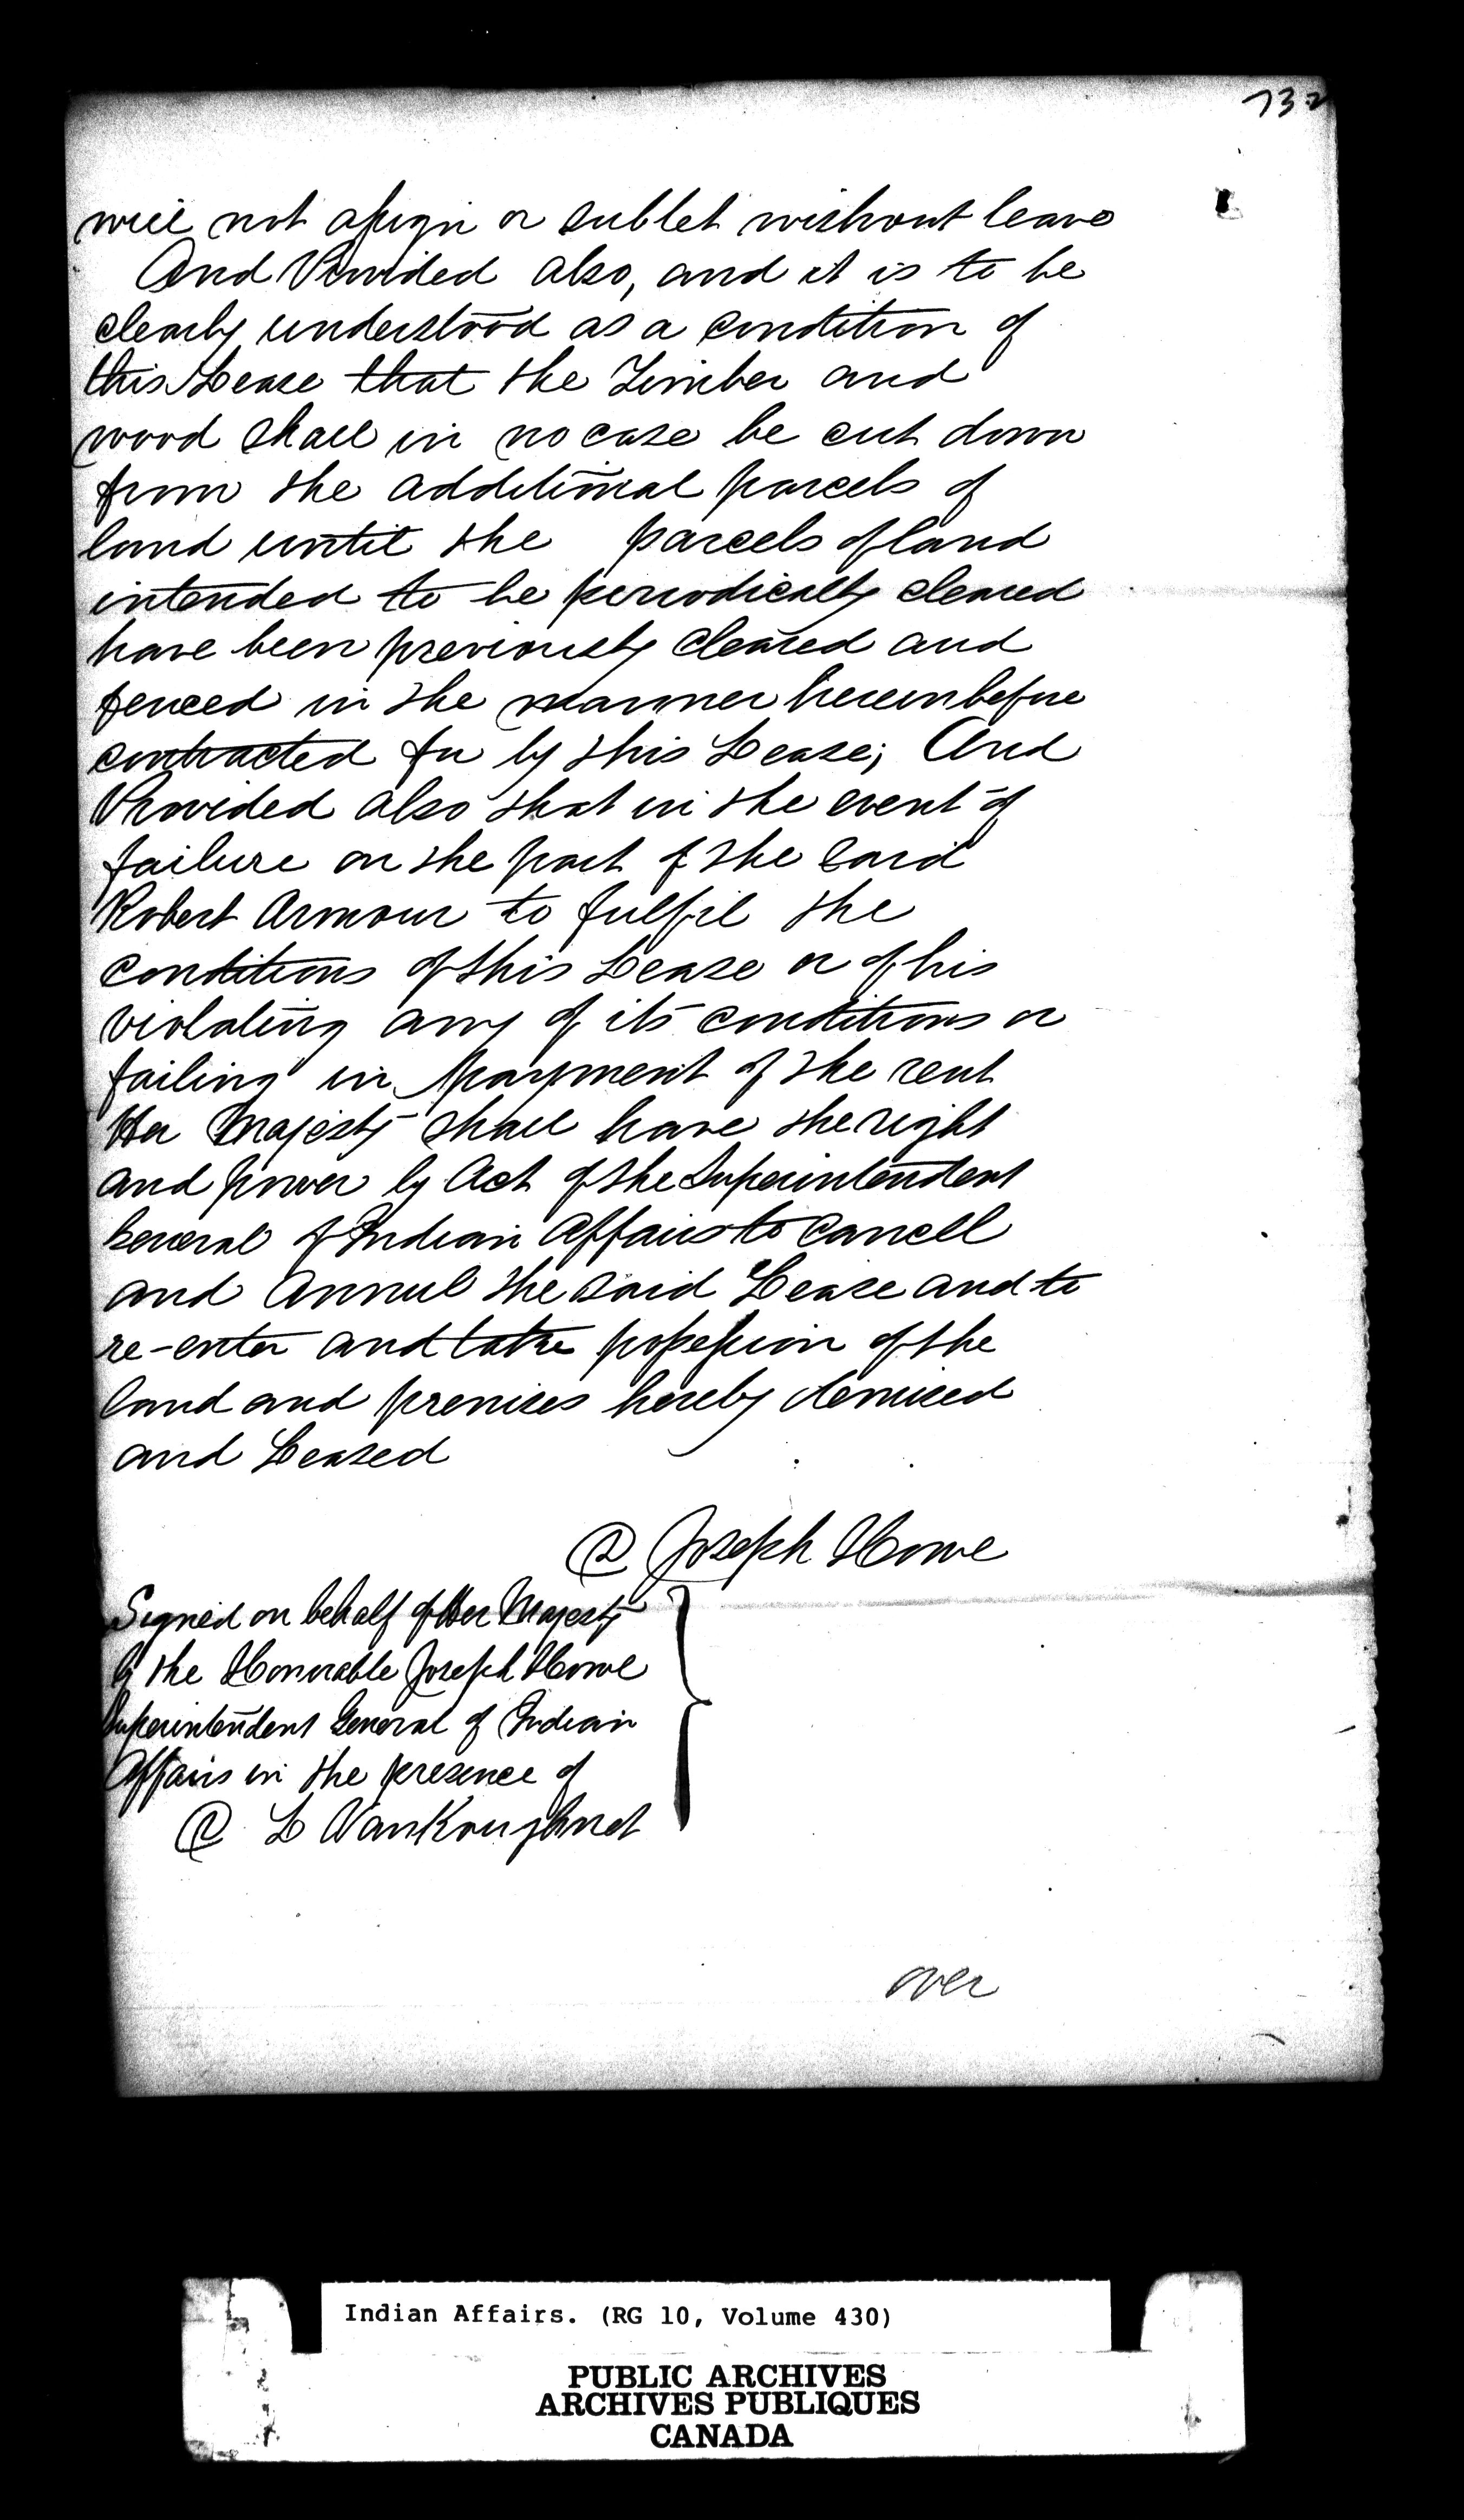 732
will not assign or sublet without leave
And Provided also, and it is to be
clearly understood as a condition of
this Lease that the Timber and
wood shall in no case be cut down
from the additional parcels of
land until the parcels of land
intended to be periodically cleared
have been previously cleared and
fenced in the manner hereinbefore
contracted for by this Lease; And
Provided also that in the event of
failure on the part of the said
Robert Armour to fulfil the
conditions of this Lease or of his
violating any of its conditions or
failing in payment of the rent
Her Majesty shall have the right
and power by Act of the Superintendent
General of Indian Affairs to cancell
and annul the said Lease and to
re-enter and take possession of the
land and premises hereby demised
and Leased
Joseph Howe
Signed on behalf of Her Majesty
by the Honorable Joseph Howe
Superintendent General of Indian
Affairs in the presence of
L VanKoughnet
over
Indian Affairs. (RG 10, Volume 430)
PUBLIC ARCHIVES
ARCHIVES PUBLIQUES
CANADA